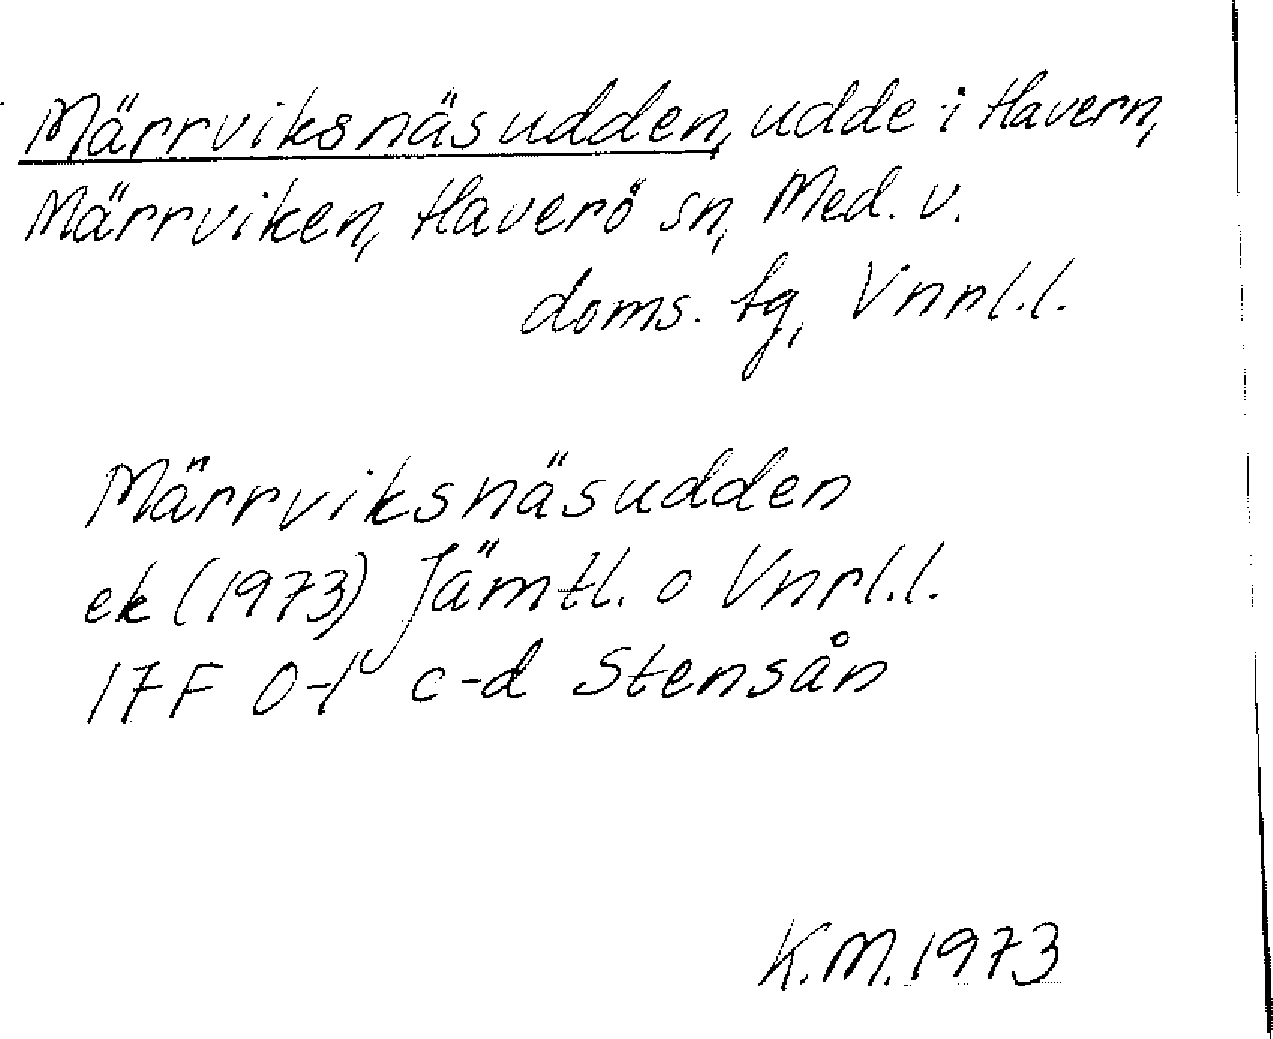 Märrviksnäsudden, udde i Havern,
Märrviken, Haverö sn, Med. v.
doms. tg, Vnrl.l.
Märrviksnäsudden
ek (1973) Jämtl. o Vnrl.l.
17F 0-1 c-d Stensån
K.M. 1973